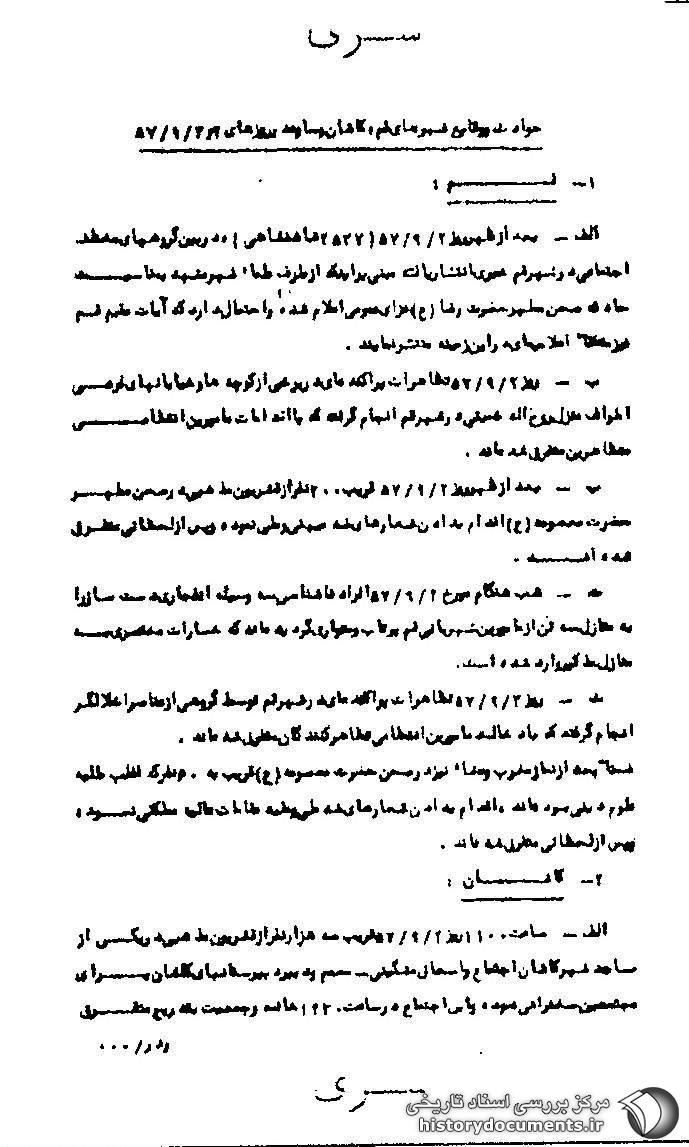 سری
حوادث ووقایع شهرهای قم، کاشان وساوه بروزهای ۲و۵۷/۹/۳
۱- قم :
الف - بعد از ظهرروز ۵۷/۹/۲ (۲۵۳۷شاهنشاهی) در بین گروههای مختلف
اجتماعی در شهرقم خبری انتشاریافت مبنی براینکه از طرف علماء شهرمشهد بمناسبت
حادثه صحن مطهر حضرت رضا (ع) عزای عمومی اعلام شده واحتمال دارد که آیات مقیم قسم
نیز اعلامیه‌ای در این زمینه منتشر نمایند .
ب - روز ۵۷/۹/۲ تظاهرات پراکنده‌ای در برخی از کوچه ها وخیابانهای فرعی
اطراف منزل روح اله خمینی در شهر قم انجام گرفته که با اقدامات مامورین انتظامی
متظاهرین متفرق شده‌اند .
پ - بعد از ظهرروز ۵۷/۹/۲ قریب ۲۰۰ نفر از قشریون مذهبی در صحن مطهر
حضرت معصومه (ع) اقدام به دادن شعارهای ضد میهنی وملی نموده وپس از لحظاتی متفرق
شده اند .
ت - شب هنگام مورخ ۵۷/۹/۲ افراد ناشناس سه وسیله انفجاری دست ساز را
به منازل سه تن از مامورین شهربانی قم پرتاب ومتواری گردیده‌اند که خسارات مختصری به
منازل مذکور وارد شده است.
ث - روز ۵۷/۹/۳ تظاهرات پراکنده‌ای در شهر قم توسط گروهی از عناصر اخلالگر
انجام گرفته که با دخالت مامورین انتظامی تظاهرکنندگان متفرق شده‌اند .
ضمنا" بعد از نماز مغرب وعشاء نیز در صحن حضرت معصومه (ع) قریب به ۵۰ نفر که اغلب طلبه
علوم دینی بوده‌اند ، اقدام به دادن شعارهای ضد ملی وعلیه مقامات عالیه مملکتی نموده
وپس از لحظاتی متفرق شده‌اند .
۲- کاشان :
الف - ساعت ۱۱۰۰ روز ۵۷/۹/۲ قریب سه هزار نفر از قشریون مذهبی در یکی از
مساجد شهر کاشان اجتماع و بیمارستانهای کاشان برای
مجتمعین سخنرانی نموده و این اجتماع در ساعت خاتمه وجمعیت بتدریج متفرق
۰۰۰/
سری
مرکز بررسی اسناد تاریخی
historydocuments.ir